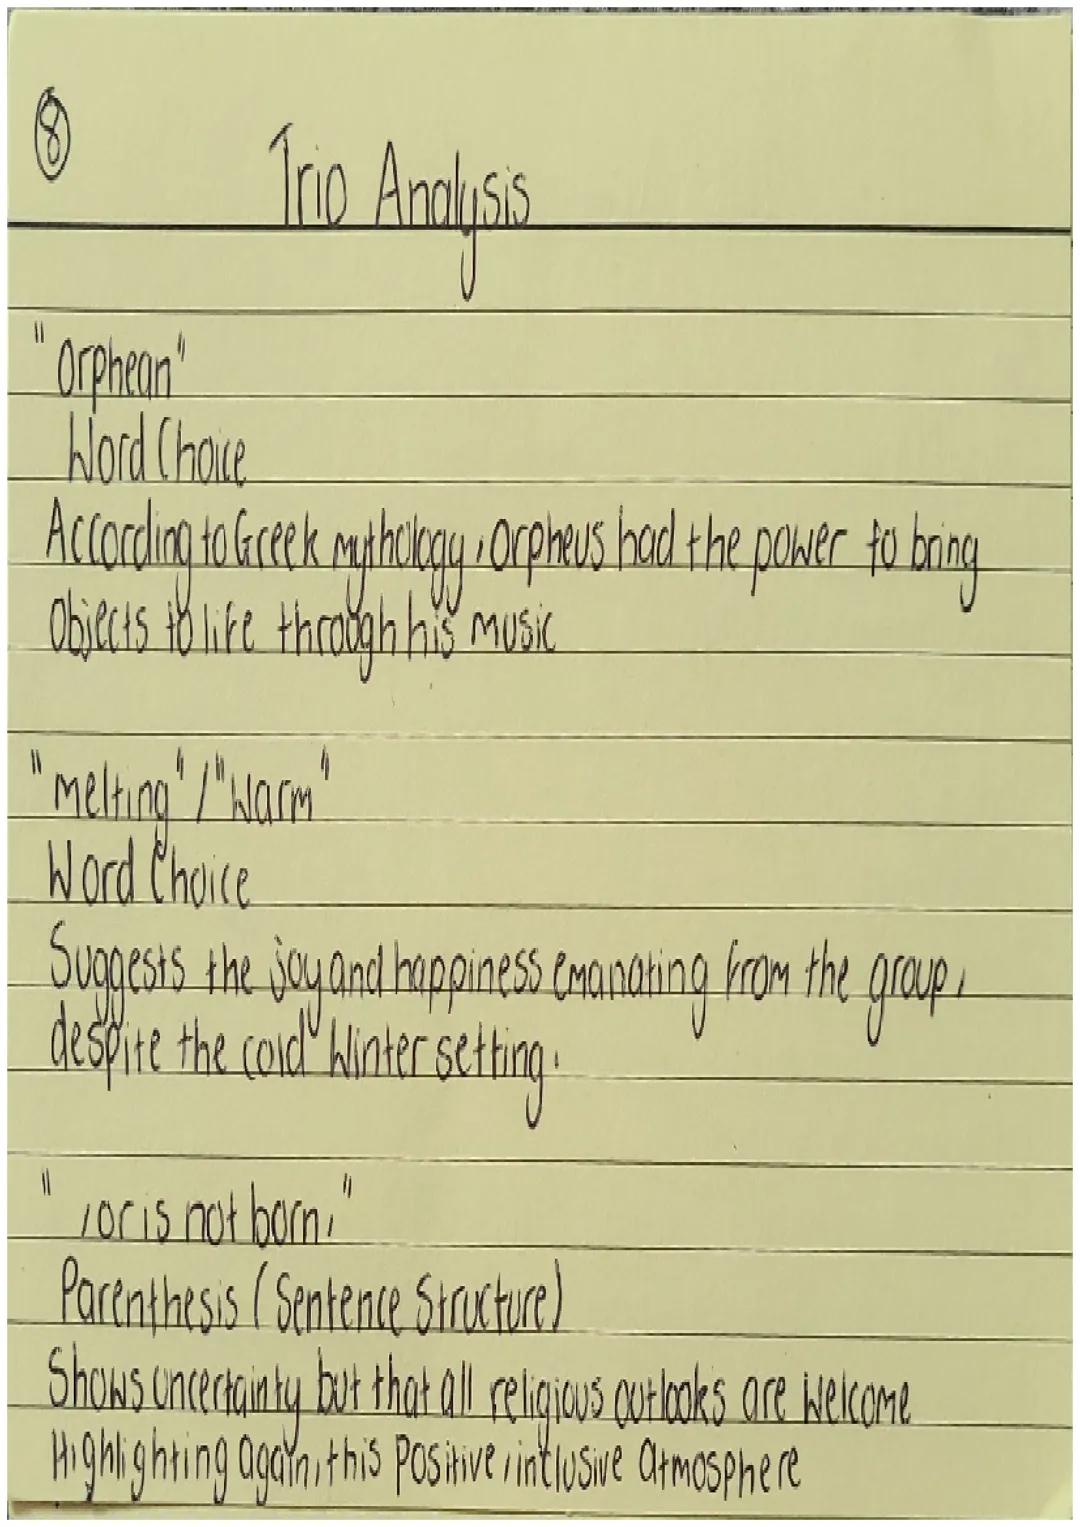 8
Trio Analysis
"Orphean"
Word Choice
According to Greek mythology, Orpheus had the power to bring
Objects to life through his music
"melting" / "Warm"
Word Choice
Suggests the joy and happiness emanating from the group,
despite the cold Winter setting.
", or is not born,"
Parenthesis (Sentence Structure)
Shows uncertainty but that all religious outlooks are welcome
Highlighting again, this Positive, inclusive atmosphere